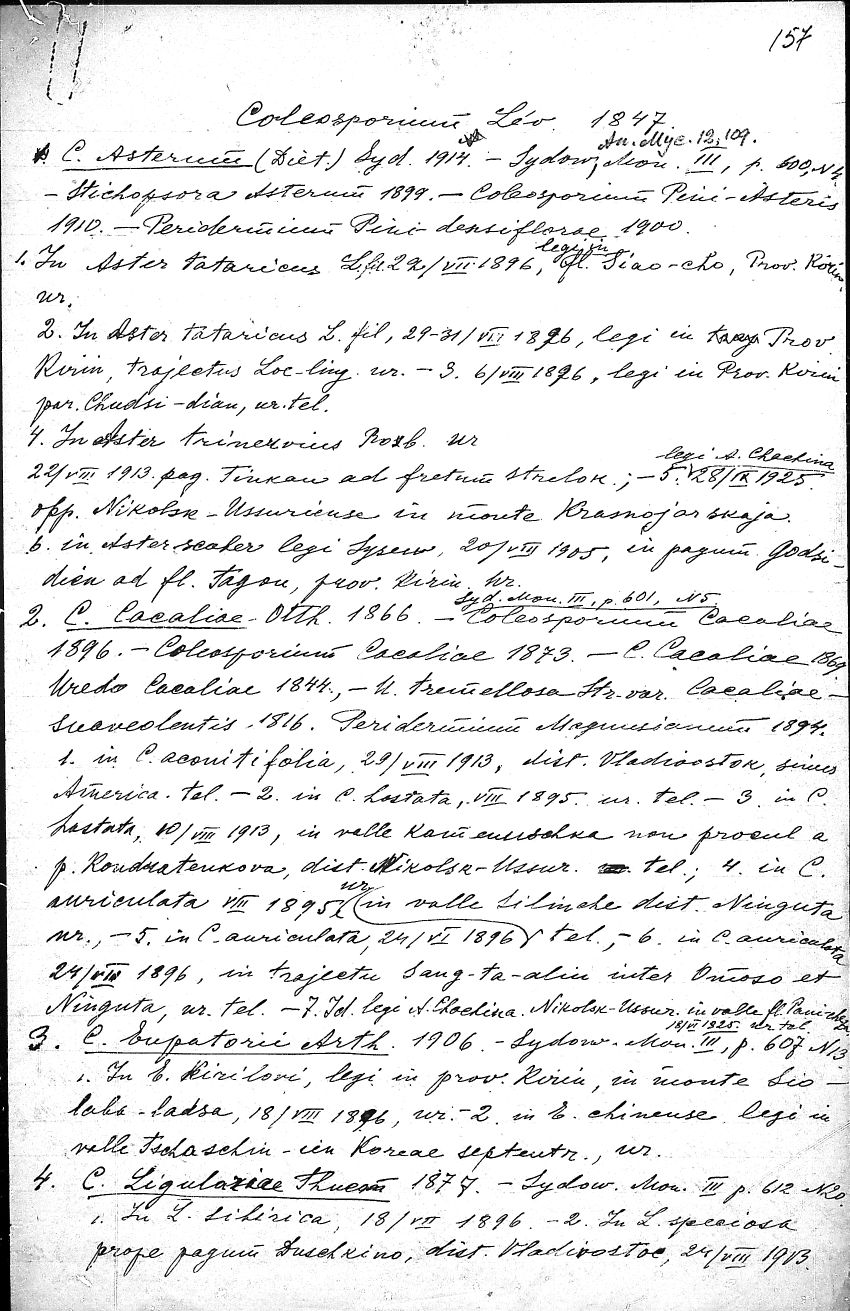 157
Coleosporium Lév. 1847
An. Myc. 12, 109.
C. Asterum (Diet.) Syd. 1914. – Sydow, Mon. III, p. 600, N 4.
– Stichopsora Asterum 1899. – Coleosporium Pini-Asteris
1910. – Peridermium Pini densiflorae 1900.
legi in
1. In Aster tataricus L. fil. 22/VII 1896, fl. Siao-cho, Prov. Kirin,
ur.
2. In Aster tataricus L. fil, 29-31/VII 1896, legi in Prov.
Kirin, trajectus Loc-ling. ur. – 3. 6/VIII 1896, legi in Prov. Kirin
par. Chudsi-dian, ur. tel.
4. In Aster trinervius Roxb. ur
legi A. Chochina
22/VIII 1913 pag. Tinkan ad fretum Strelok.; – 5. 28/IX 1925.
opp. Nikolsk-Ussuriense in monte Krasnojarskaja.
6. in Aster scaber legi 20/VIII 1905, in pagum Godsi-
dien ad fl. Tagou, prov. Kirin. ur.
Syd. Mon. III, p. 601, N 5
2. C. Cacaliae Otth. 1866. – Coleosporium Cacaliae
1896. – Coleosporium Cacaliae 1873. – C. Cacaliae 1869.
Uredo Cacaliae 1844, – U. tremellosa Str. var. Cacaliae –
suaveolentis 1816. Peridermium Magnusianum 1894.
1. in C. aconitifolia, 29/VIII 1913, dist. Vladivostok, sinus
America. tel. – 2. in C. hastata, VIII 1895. ur. tel. – 3. in C.
hastata, 10/VIII 1913, in valle Kamenuschka non procul a
p. Kondratenkova, dist. Nikolsk-Ussur. tel.; 4. in C.
ur
auriculata VII 1895, in valle Silinche dist. Ninguta
ur., – 5. in C. auriculata, 24/VI 1896 tel., – 6. in C. auriculata
24/VIII 1896, in trajectu Sang-ta-alin inter Omoso et
Ninguta, ur. tel. – 7. Id. legi A. Chochina. Nikolsk-Ussur. in valle fl.
18/VI 1925. ur. tel.
3. C. Eupatorii Arth. 1906. – Sydow. Mon. III, p. 607 N 13.
1. In E. Kirilovi, legi in prov. Kirin, in monte Lio-
laba-ladsa, 18/VIII 1896, ur. – 2. in E. chinense legi in
valle Tschaschin-ien Koreae septentr., ur.
4. C. Ligulariae Thuem 1877. – Sydow. Mon. III p. 612 N 20.
1. In L. sibirica, 18/VII 1896. – 2. In L. speciosa
prope pagum Duschkino, dist. Vladivostoc, 24/VIII 1913.